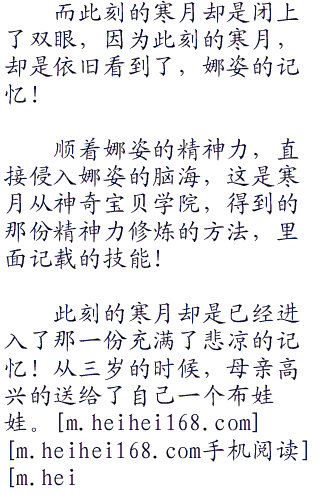 而此刻的寒月却是闭上
了双眼，因为此刻的寒月，
却是依旧看到了，娜姿的记
忆！
顺着娜姿的精神力，直
接侵入娜姿的脑海，这是寒
月从神奇宝贝学院，得到的
那份精神力修炼的方法，里
面记载的技能！
此刻的寒月却是已经进
入了那一份充满了悲凉的记
忆！从三岁的时候，母亲高
兴的送给了自己一个布娃
娃。[m.heihei168.com]
[m.heihei168.com手机阅读]
[m.hei